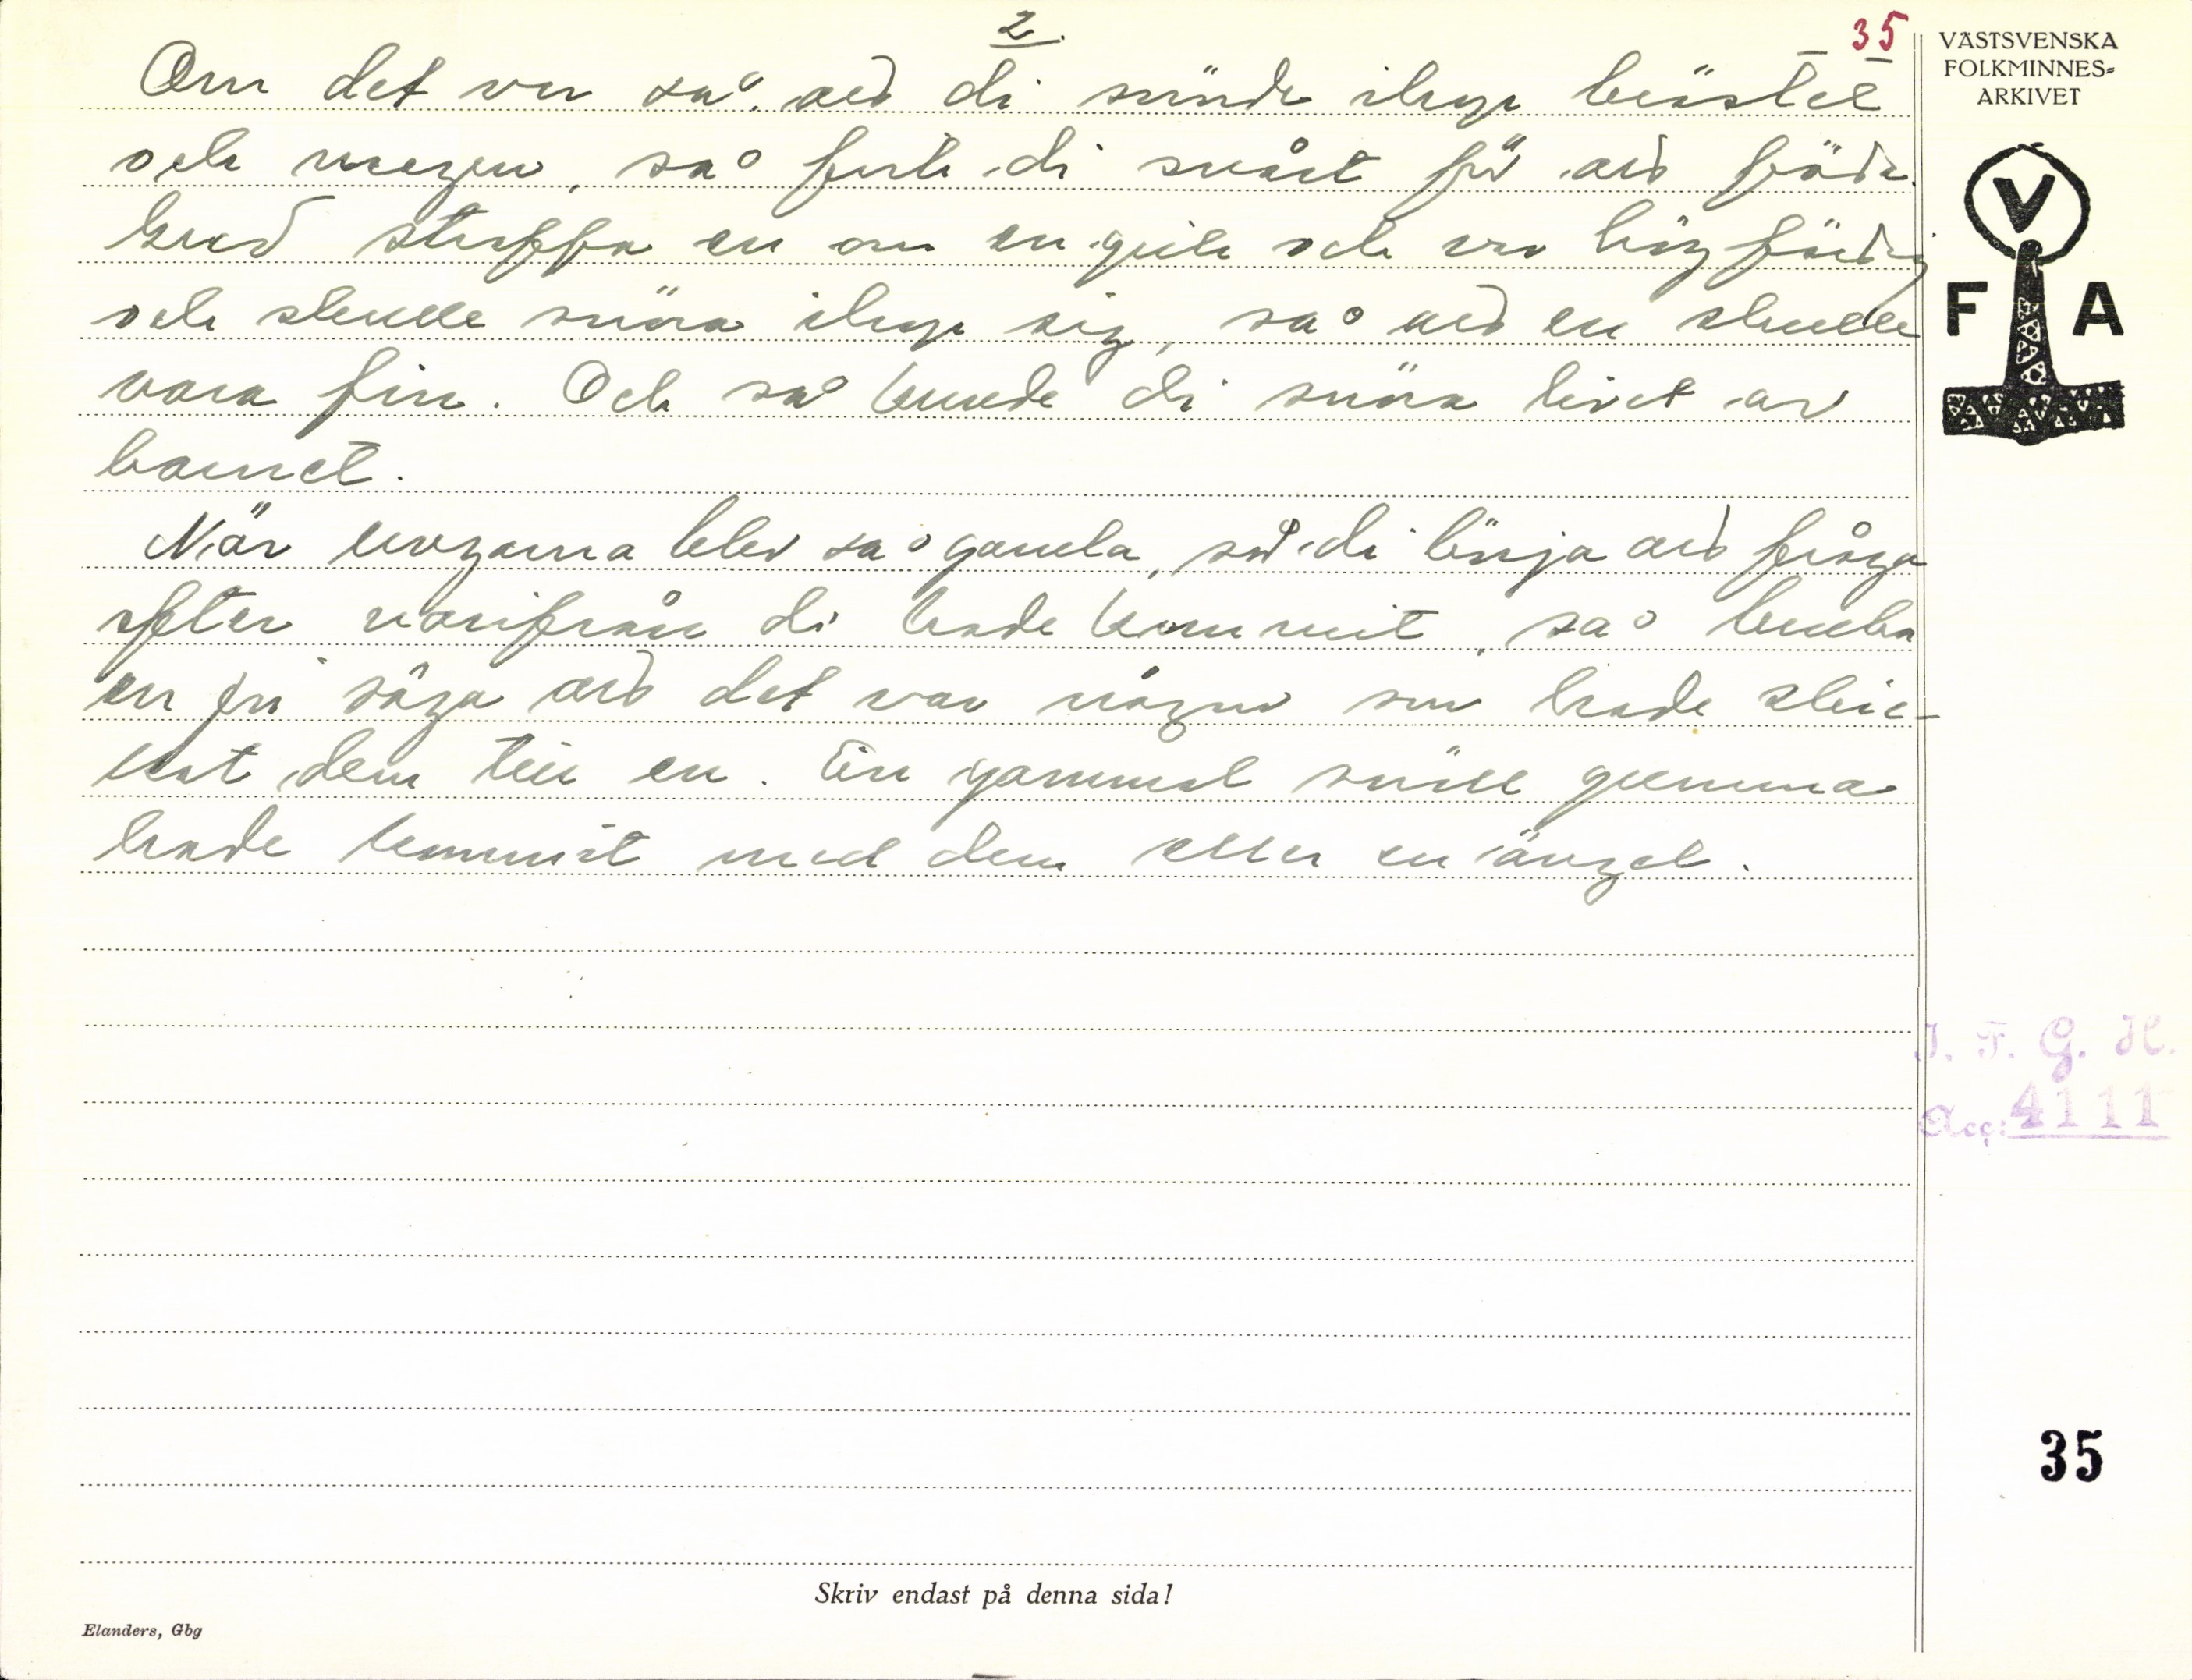 2.
35
Om det var så, att di snörde ihop bröstet
och magen, så feck di svårt för att föda.
Gud straffa en om en gick och var högfärdig
och skulle snöra ihop sig, så att en skulle
vara fin. Och så kunde di snöra livet av
barnet.
När ungarna blev så gamla, så di börja att fråga
efter varifrån di hade kommit, så bruka
en säga att det var någon som hade skic-
kat dem till en. En gammal snäll gumma
hade kommit med dem eller en ängel.
VÄSTSVENSKA
FOLKMINNES-
ARKIVET
V
F A
I. F. G. H.
Acc: 4111
35
Skriv endast på denna sida!
Elanders, Gbg